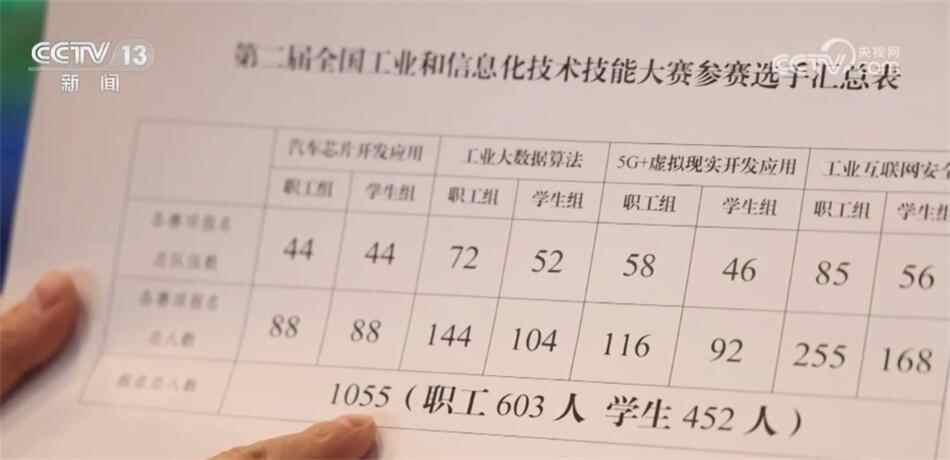 CCTV 13
新闻
央视网
CCTV.com
第二届全国工业和信息化技术技能大赛参赛选手汇总表
汽车芯片开发应用 工业大数据算法 5G+虚拟现实开发应用 工业互联网安全
职工组 学生组 职工组 学生组 职工组 学生组 职工组 学生组
各赛项报名
总队伍数
44 44 72 52 58 46 85 56
各赛项报名
总人数
88 88 144 104 116 92 255 168
报名总人数
1055（职工 603 人 学生 452 人）